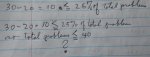 30-20=10 ≤ 25% of total problem
30-20=10 ≤ 25% of total problem
or Total problem ≤ 40
?